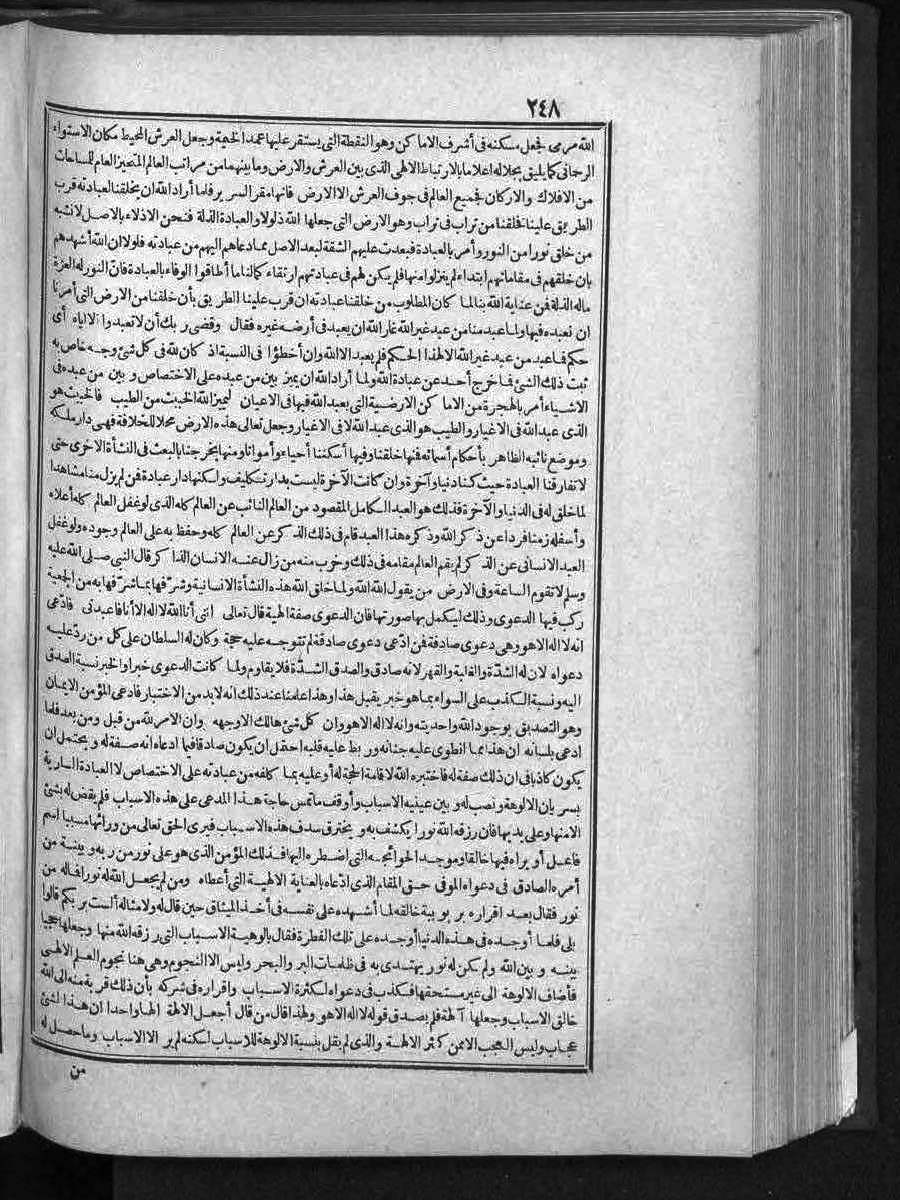 ٢٤٨
الله مرمى فجعل مسكنه فى أشرف الاماكن وهو النقطة التى يستقر عليها عمد الخيمة وجعل العرش المحيط مكان الاستواء
الرحمانى كما يليق بجلاله اعلاما بالارتباط الالهى الذى بين العرش والارض وما بينهما من مراتب العالم المتحيز العام للمساحات
من الافلاك والاركان فجميع العالم فى جوف العرش الا الارض فانها مقر السرير فلما أراد الله ان يخلقنا لعبادته قرب
الطريق علينا فخلقنا من تراب فى تراب وهو الارض التى جعلها الله ذلولا والعبادة الذلة فنحن الاذلاء بالاصل لا نشبه
من خلق نورا من النور وأمر بالعبادة فبعدت عليهم الشقة لبعد الاصل مما دعاهم اليهم من عبادته فلولا ان الله أشهدهم
بان خلقهم فى مقاماتهم ابتداء لم ينزلوا منها فلم يكن لهم فى عبادتهم ارتقاء كما لنا ما أطاقوا الوفاء بالعبادة فانّ النور له العزة
ماله الذلة فمن عناية الله بنا لما كان المطلوب من خلقنا عبادته ان قرب علينا الطريق بأن خلقنا من الارض التى أمرنا
ان نعبده فيها ولما عبد منا من عبد غير الله غار الله ان يعبد فى أرضه غيره فقال وقضى ربك أن لا تعبدوا الا اياه أى
حكم فما عبد من عبد غير الله الا لهذا الحكم فلم يعبد الا الله وان أخطؤا فى النسبة اذ كان لله فى كل شئ وجه خاص به
ثبت ذلك الشئ فما خرج أحد عن عبادة الله ولما أراد الله ان يميز بين من عبده على الاختصاص وبين من عبده فى
الاشياء أمر بالهجرة من الاماكن الارضية التى يعبد الله فيها فى الاعيان ليميز الله الخبيث من الطيب فالخبيث هو
الذى عبد الله فى الاغيار والطيب هو الذى عبد الله لا فى الاغيار وجعل تعالى هذه الارض محلا للخلافة فهى دار ملكه
وموضع نائبه الظاهر بأحكام أسمائه فمنها خلقنا وفيها أسكننا أحياء وأمواتا ومنها يخرجنا بالبعث فى النشأة الاخرى حتى
لا تفارقنا العبادة حيث كنا دنيا وآخرة وان كانت الآخرة ليست بدار تكليف ولكنها دار عبادة فمن لم يزل منا مشاهدا
لما خلق له فى الدنيا والآخرة فذلك هو العبد الكامل المقصود من العالم النائب عن العالم كله الذى لو غفل العالم كله أعلاه
وأسفله زمنا فردا عن ذكر الله وذكره هذا العبد قام فى ذلك الذكر عن العالم كله وحفظ به على العالم وجوده ولو غفل
العبد الانسانى عن الذكر لم يقم العالم مقامه فى ذلك وخرب منه من زال عنه الانسان الذاكر قال النبى صلى الله عليه
وسلم لا تقوم الساعة وفى الارض من يقول الله الله ولما خلق الله هذه النشأة الانسانية وشرّفها بما شرّفها به من الجمعية
ركب فيها الدعوى وذلك ليكمل بها صورتها فان الدعوى صفة الهية قال تعالى اننى أنا الله لا اله الا أنا فاعبدنى فادّعى
انه لا اله الا هو وهى دعوى صادقة فمن ادّعى دعوى صادقة لم تتوجه عليه حجة وكان له السلطان على كل من ردّ عليه
دعواه لان له الشدّة والغلبة والقهر لانه صادق والصدق الشدّة فلا يقاوم ولما كانت الدعوى خبرا والخبر نسبة الصدق
اليه ونسبة الكذب على السواء بما هو خبر يقبل هذا وهذا علمنا عند ذلك انه لا بد من الاختبار فادعى المؤمن الايمان
وهو التصديق بوجود الله واحديته وانه لا اله الا هو وان كل شئ هالك الا وجهه وان الامر لله من قبل ومن بعد فلما
ادعى بلسانه ان هذا مما انطوى عليه جنانه وربط عليه قلبه احتمل ان يكون صادقا فيما ادعاه انه صفة له ويحتمل ان
يكون كاذبا فى ان ذلك صفة له فاختبره الله لاقامة الحجة له أو عليه بما كلفه من عبادته على الاختصاص لا العبادة السارية
بسريان الالوهة ونصب له وبين عينيه الاسباب وأوقف ما تمس حاجة هذا المدعى على هذه الاسباب فلم يقض له بشئ
الا منها وعلى يديها فان رزقه الله نورا يكشف به ويخترق سدف هذه الاسباب فيرى الحق تعالى من ورائها مسببا اسم
فاعل أو يراه فيها خالقا وموجد الحوائجه التى اضطره اليها فذلك المؤمن الذى هو على نور من ربه وبينة من
أمره الصادق فى دعواه الموفى حق المقام الذى ادّعاه بالعناية الالهية التى أعطاه ومن لم يجعل الله له نورا فما له من
نور فقال بعد اقراره بربوبية خالقه لما أشهده على نفسه فى أخذ الميثاق حين قال له ولامثاله ألست بربكم قالوا
بلى فلما أوجده فى هذه الدنيا أوجده على تلك الفطرة فقال بالوهية الاسباب التى رزقه الله منها وجعلها حجبا
بينه وبين الله ولم يكن له نور يهتدى به فى ظلمات البر والبحر وليس الا النجوم وهى هنا نجوم العلم الالهى
فأضاف الالوهة الى غير مستحقها فكذب فى دعواه لكثرة الاسباب واقراره فى شركه بأن ذلك قربة منه الى الله
خالق الاسباب وجعلها آلهة فلم يصدق قوله لا اله الا هو ولهذا قال من قال أجعل الآلهة الها واحدا ان هذا لشئ
عجاب وليس العجب الا ممن كثر الآلهة والذى لم يقل بنسبة الالوهة للاسباب لكنه لم ير الا الاسباب وما حصل له
من